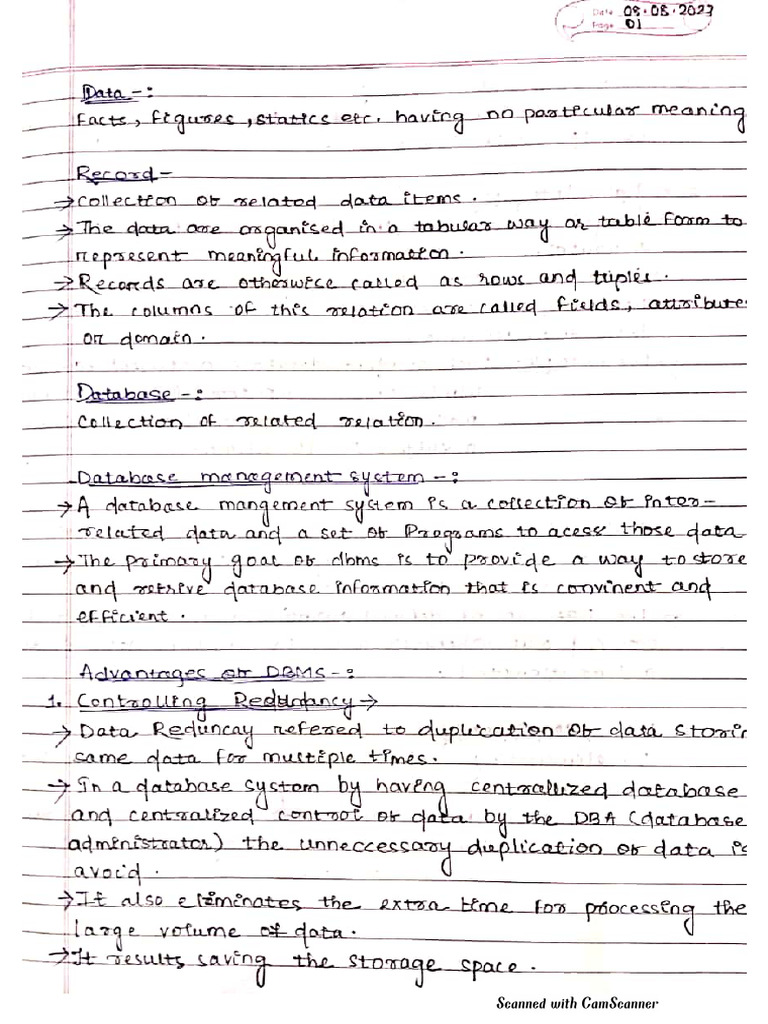 Date 08.08.2023
Page 01
Data -:
Facts, figures, statics etc. having no particular meaning
Record-
→ Collection of related data items.
→ The data are organised in a tabular way or table form to
represent meaningful information.
→ Records are otherwise called as rows and tuples.
→ The columns of this relation are called fields, attribute
or domain.
Database -:
Collection of related relation.
Database management system -:
→ A database mangement system is a collection of inter-
related data and a set of Programs to acess those data
→ The primary goal of dbms is to provide a way to store
and retrive database information that is convinent and
efficient.
Advantages of DBMS -:
1. Controlling Redundancy →
→ Data Reduncay refered to duplication of data storin
same data for multiple times.
→ In a database system by having centralized database
and centralized control of data by the DBA (database
administrator) the unneccessary duplication of data is
avoid.
→ It also eliminates the extra time for processing the
large volume of data.
→ It results saving the storage space.
Scanned with CamScanner